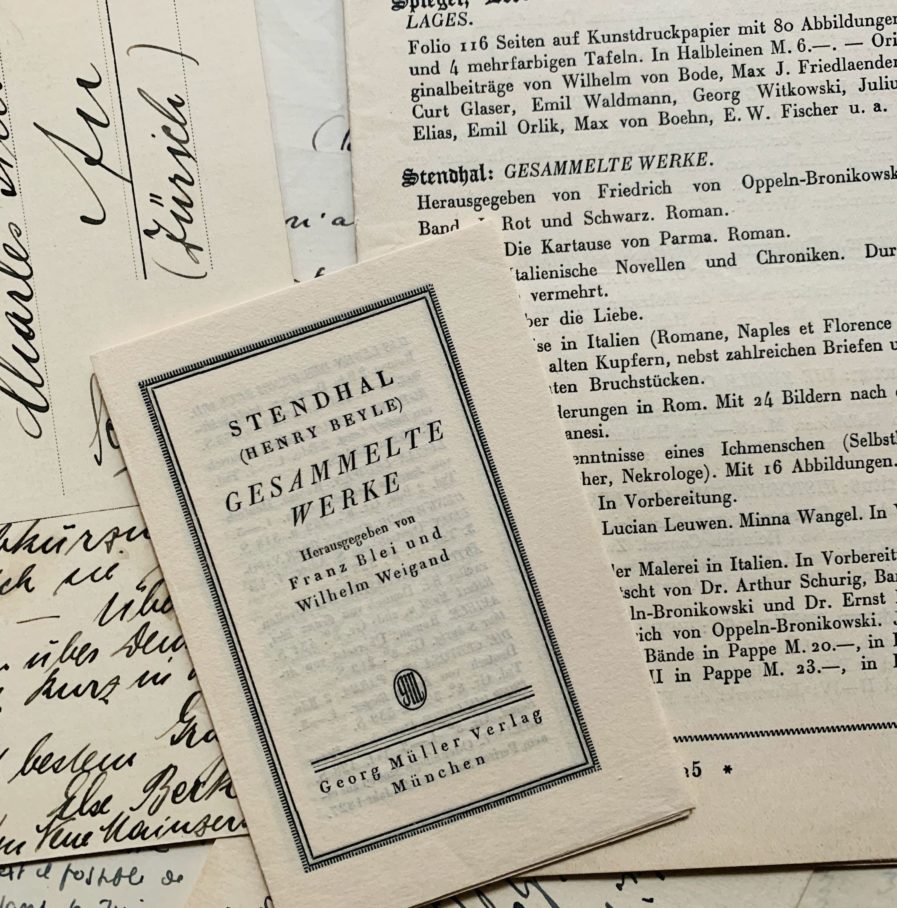 Spiegel,
LAGES.
Folio 116 Seiten auf Kunstdruckpapier mit 80 Abbildungen
und 4 mehrfarbigen Tafeln. In Halbleinen M. 6.—. — Ori
ginalbeiträge von Wilhelm von Bode, Max J. Friedlaender
Curt Glaser, Emil Waldmann, Georg Witkowski, Juliu
Elias, Emil Orlik, Max von Boehn, E. W. Fischer u. a.
Stendhal: GESAMMELTE WERKE.
Herausgegeben von Friedrich von Oppeln-Bronikowsk
Band I. Rot und Schwarz. Roman.
Die Kartause von Parma. Roman.
talienische Novellen und Chroniken. Dur
vermehrt.
ber die Liebe.
se in Italien (Romane, Naples et Florence
alten Kupfern, nebst zahlreichen Briefen u
ten Bruchstücken.
derungen in Rom. Mit 24 Bildern nach
anesi.
enntnisse eines Ichmenschen (Selbst
her, Nekrologe). Mit 16 Abbildungen.
In Vorbereitung.
Lucian Leuwen. Minna Wangel. In V
er Malerei in Italien. In Vorbereit
tscht von Dr. Arthur Schurig, Ba
ln-Bronikowski und Dr. Ernst
rich von Oppeln-Bronikowski.
Bände in Pappe M. 20.—, in
II in Pappe M. 23.—, in
25 *
STENDHAL
(HENRY BEYLE)
GESAMMELTE
WERKE
Herausgegeben von
Franz Blei und
Wilhelm Weigand
GM
Georg Müller Verlag
München
Charles
Au
(Zürich)
n'a
über
kurz in
bestem
Else